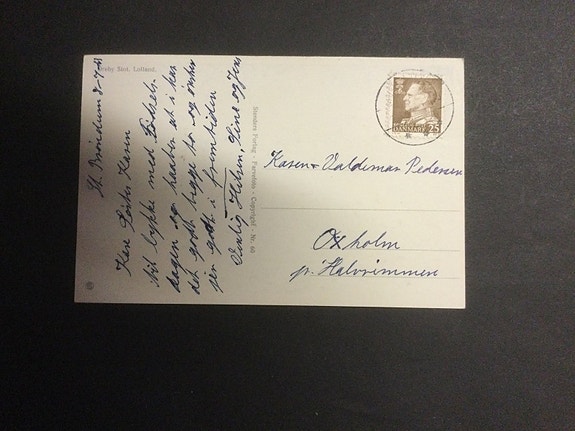 Slot, Lolland.
St. Brøndum 8-7-
Kære Karen
til lykke med
dagen og haaber at i har
det godt begge to og ønsker
jer godt i fremtiden
Venlig Hilsen,
Stenders Forlag - Eneret - Copyright - Nr. 68
DANMARK 25
Karen & Valdemar Pedersen
Oxholm
pr. Halvrimmen